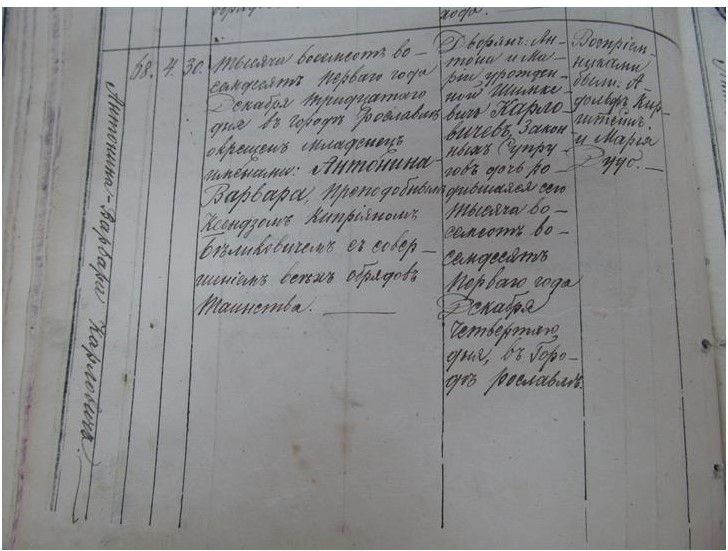 Антонина-Варвара Карловичъ.
68.
4.
30.
Тысяча восемсотъ во-
семдесятъ перваго года
Декабря тридцатаго
дня въ городѣ Рославлѣ
окрещенъ младенецъ
именами: Антонина-
Варвара, преподобнымъ
Ксендзомъ Кипріяномъ
Бѣликовичемъ съ совер-
шеніемъ всѣхъ обрядовъ
Таинства.
Дворянъ: Ан-
тона и Ма-
ріи урожден-
ной Шимке-
вичъ Карло-
вичевъ, Закон-
ныхъ Супру-
говъ дочь ро-
дившаяся сего
тысяча во-
семсотъ во-
семдесятъ
перваго года
Декабря
четвертаго
дня, въ Горо-
дѣ рославлѣ.
Воспріем-
никами
были: А
дольфъ Кир-
штейнъ
и Марія
Рудо.